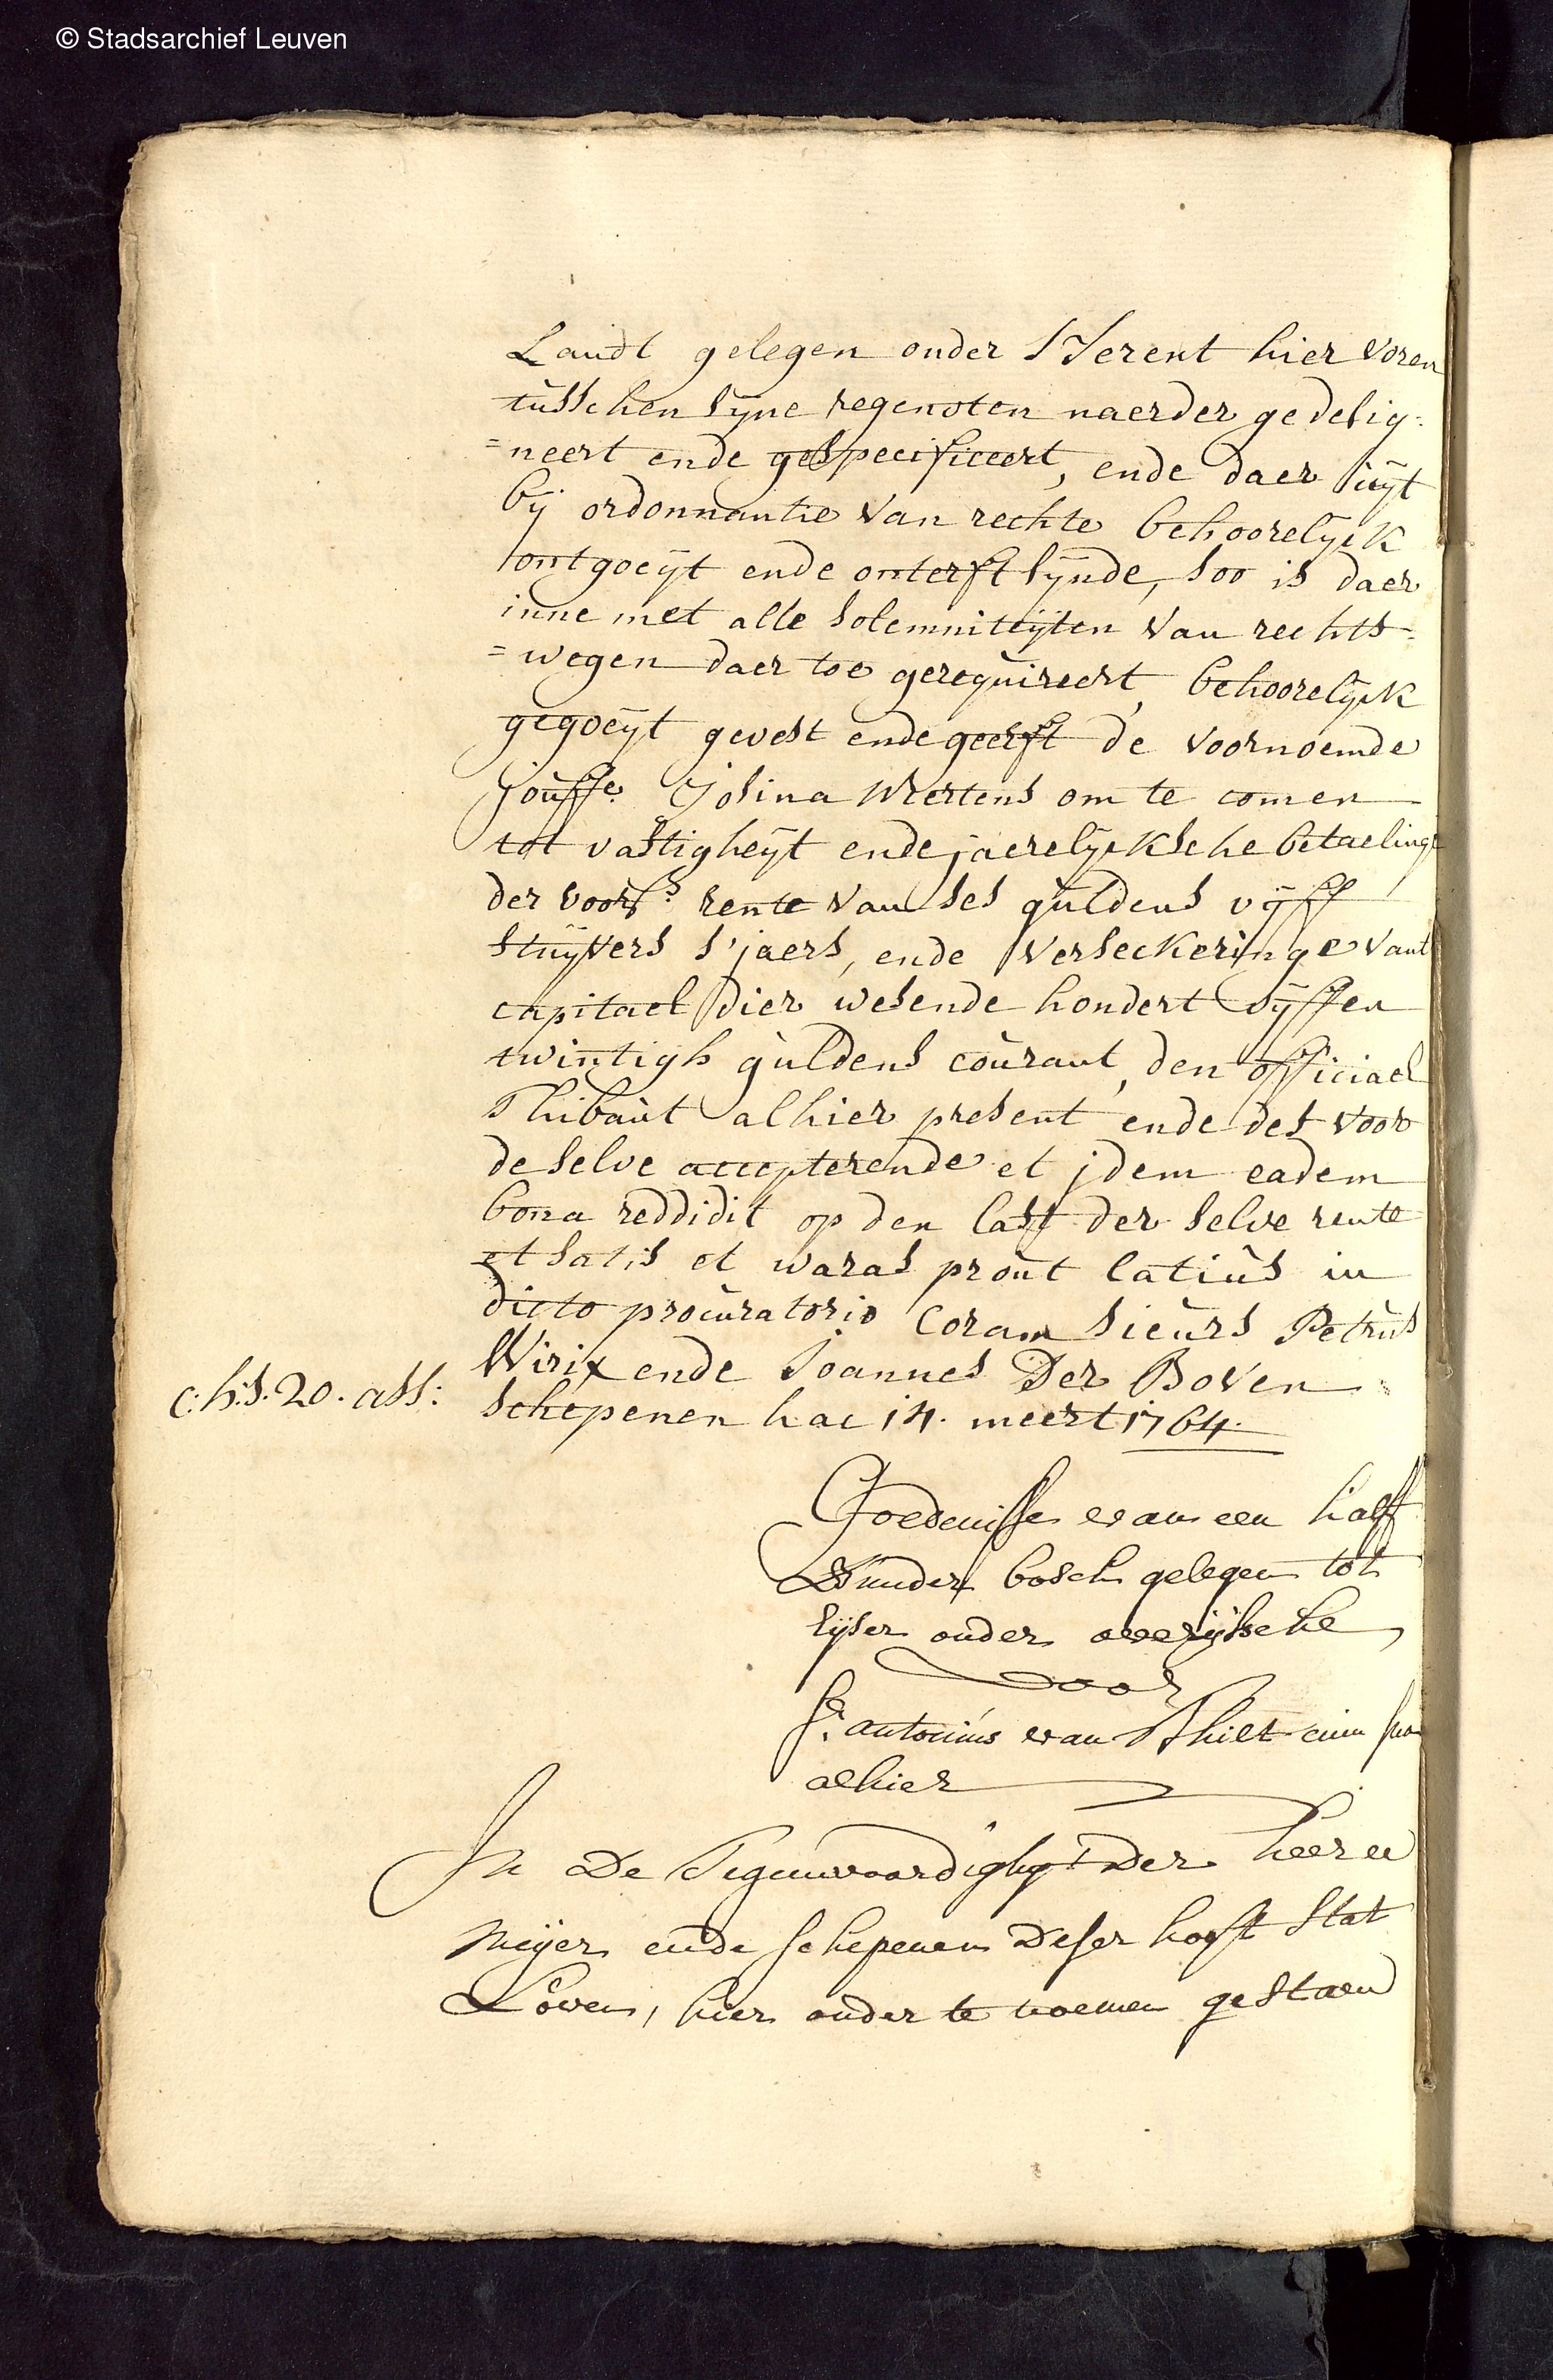 © Stadsarchief Leuven
Landt gelegen onder Herent hier voren
tusschen syne regenoten naerder gedesig:
=neert ende gespecificeert, ende daer uÿt
bÿ ordonnantie van rechte behoorelÿck
ontgoeÿt ende onterft sÿnde, soo is daer
inne met alle solemniteÿten van rechts=
=wegen daer toe gerequireert, behoorelÿck
gegoeÿt gevest ende geerft de voornoemde
jouffe. Josina Mertens om te comen
tot vastigheÿt ende jaerelÿcksche betaelinge
der voors. rente van ses guldens vÿff
stuÿvers s'jaers, ende versekeringe vant
capitael dier wesende hondert vÿffen
twintigh guldens courant, den officiael
Thibaut alhier present ende des voor
de selve accepterende et jdem eadem
bona reddidit op den last der selve rente
et satis et waras prout latius in
dicto procuratorio Coram sieurs Petrus
Wirix ende Joannes Der Boven
c:h:s:20. ass: schepenen hac 14. meert 1764.
Goedenisse van een halff
Bunder bosch gelegen tot
Eÿser onder overÿssche
door
Sr. antonius van Thilt cum sua
alhier
In De Tegenwoordigheyt Der heeren
Meÿer ende schepenen Deser hooft stat
Loven, hier onder te noemen gestaen